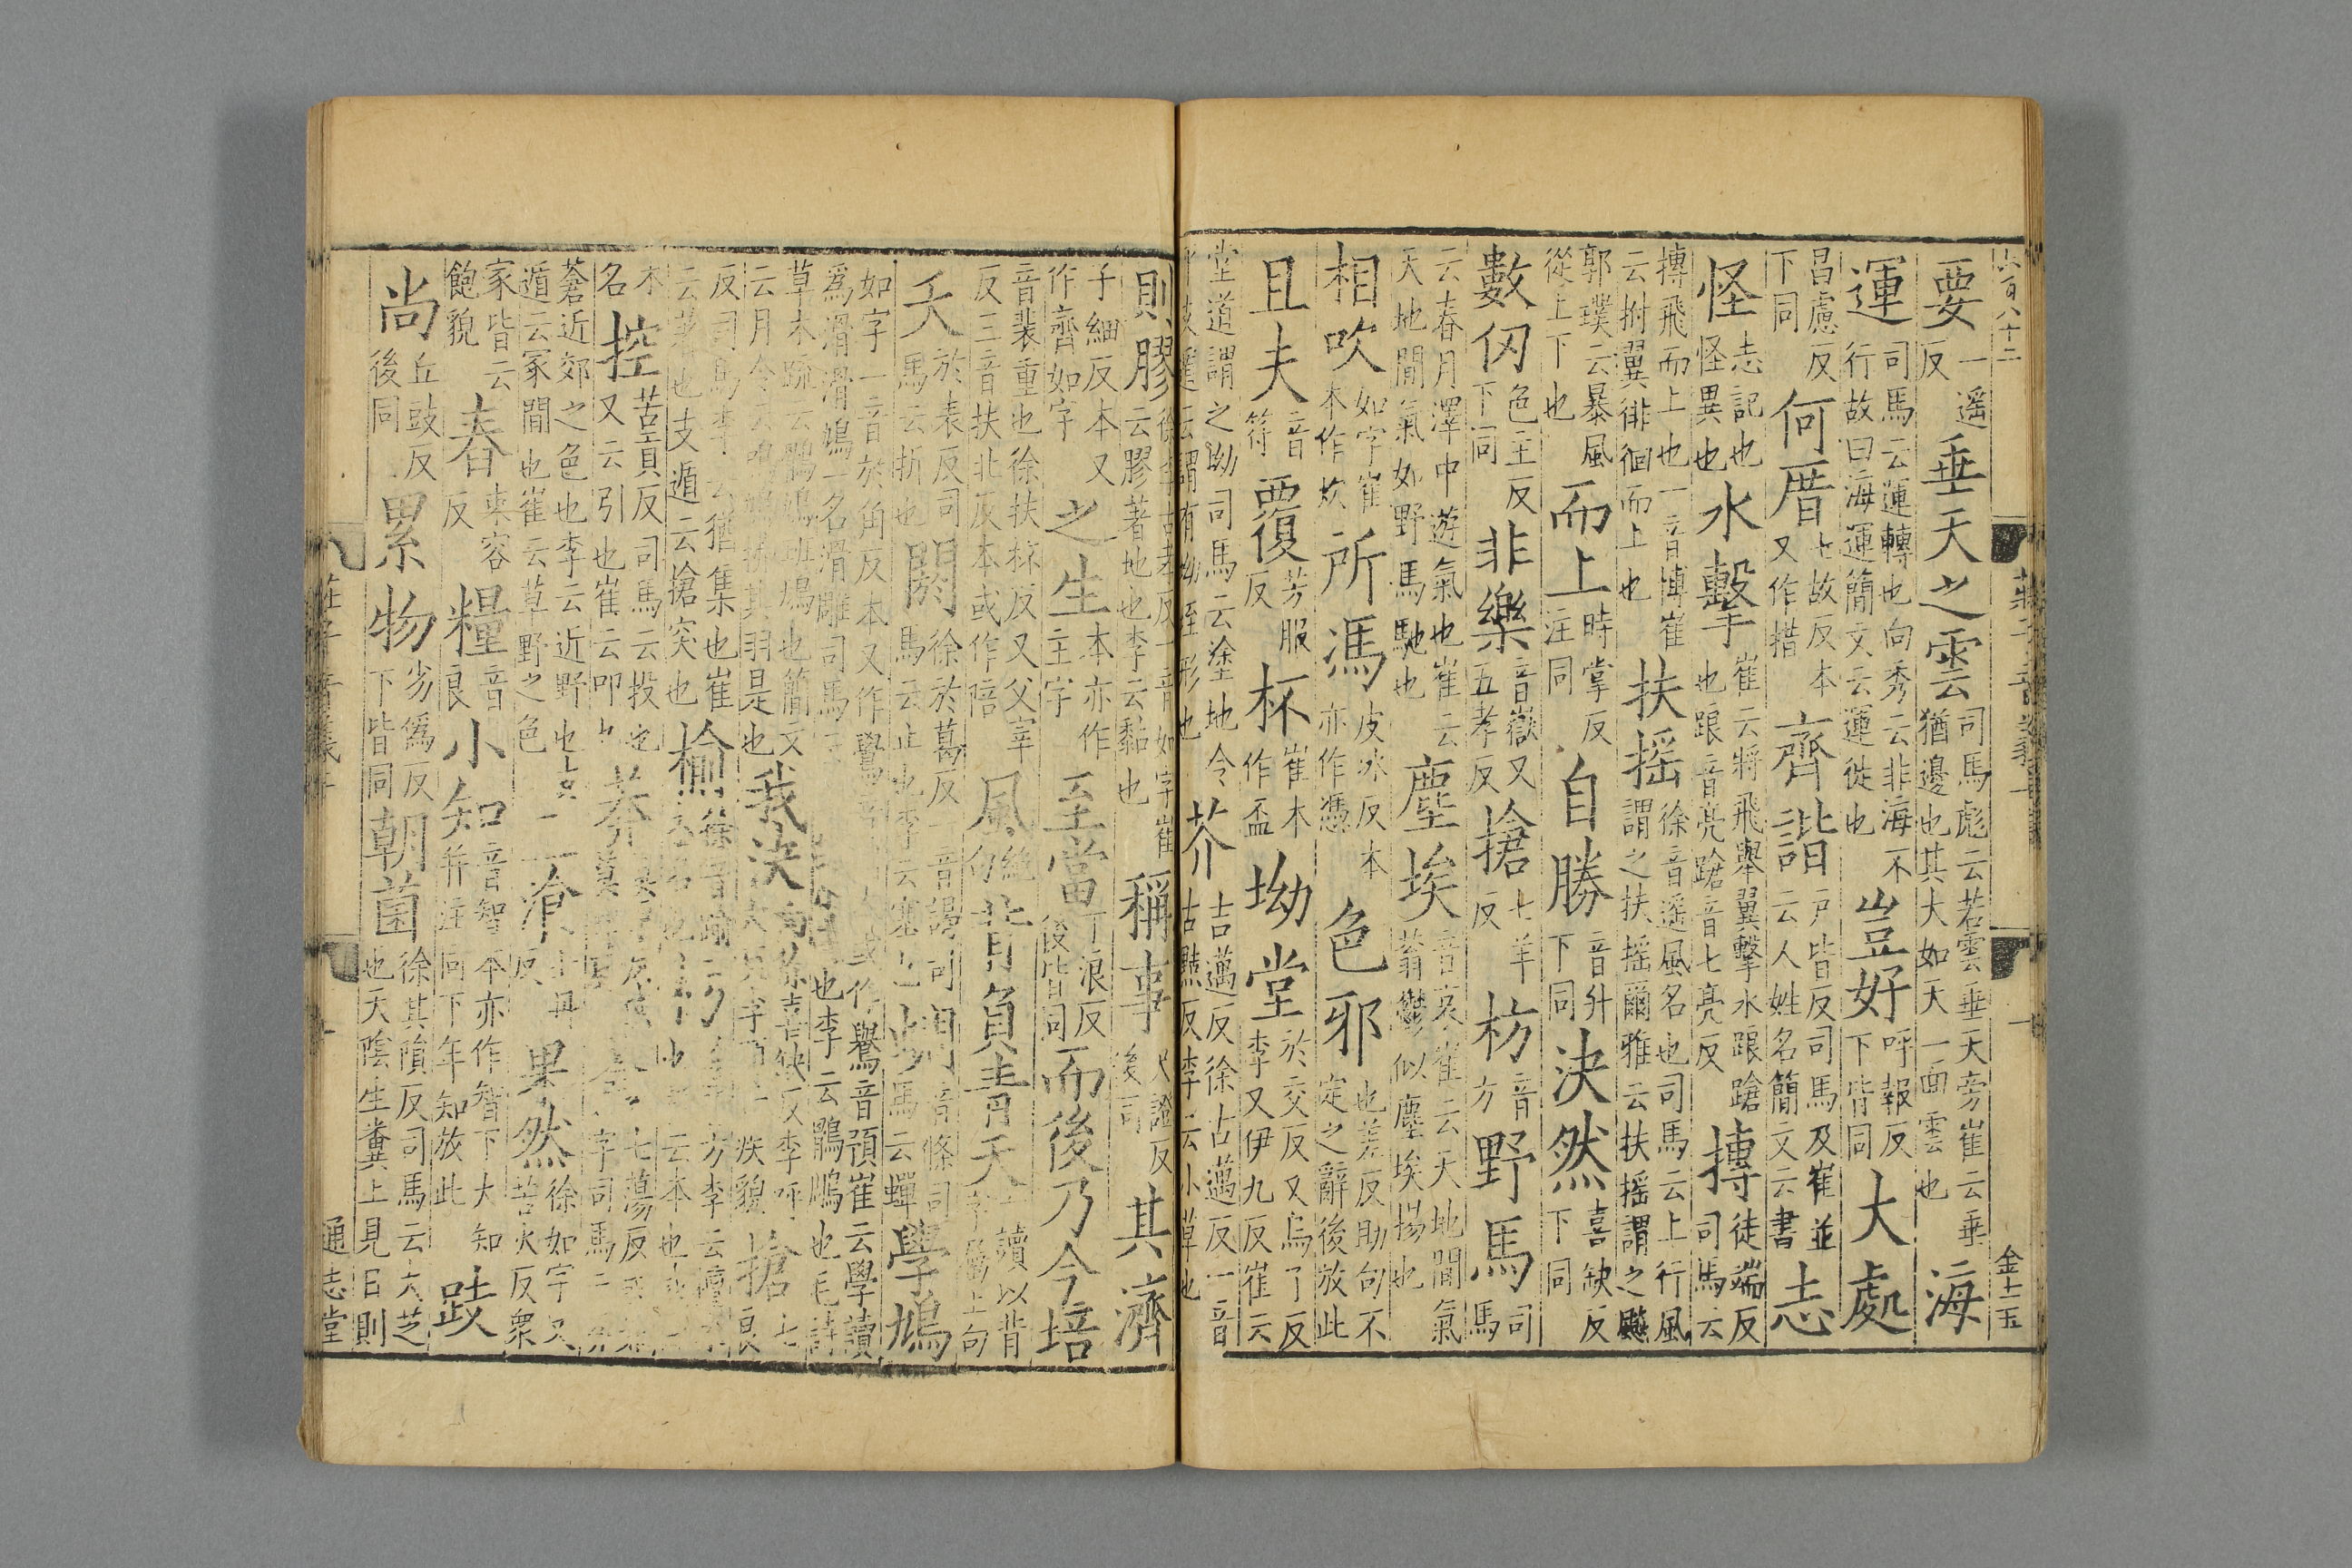 要一遥反垂天之雲司馬彪云若雲垂天旁崔云垂猶邊也其大如天一面雲也海
運司馬云運轉也向秀云非海不行故曰海運簡文云運徙也豈好呼報反下皆同大處
昌慮反下同何厝七故反本又作措齊諧戸皆反司馬及崔並云人姓名簡文云書志
怪志記也怪異也水擊崔云將飛舉翼擊水踉蹌也踉音亮蹌音七亮反摶徒端反司馬云
摶飛而上也一音博崔云拊翼徘徊而上也扶摇徐音遥風名也司馬云上行風謂之扶摇爾雅云扶摇謂之飇
郭璞云暴風從上下也而上時掌反注同自勝音升下同決然喜缺反下同
數仞色主反下同非樂音嶽又五孝反搶七羊反枋音方野馬司馬
云春月澤中遊氣也崔云天地間氣如野馬馳也塵埃音哀崔云天地間氣蓊鬱似塵埃揚也
相吹如字崔本作炊所馮皮冰反本亦作憑色邪也差反助句不定之辭後放此
且夫音符覆芳服反杯崔本作盃坳堂於交反又烏了反李又伊九反崔云
堂道謂之坳司馬云塗地令芥吉邁反徐古邁反一音古黠反李云小草也
則膠云膠著地也李云黏也稱事尺證反後同其濟
子細反本又作齊如字之生本亦作主字至當丁浪反後皆同而後乃今培
音裴重也徐扶杯反又父宰反三音扶北反本或作陪風絶句背負青天一讀以背字屬上句
夭於表反司馬云折也閼徐於葛反一音謁司馬云止也李云塞也蜩音條司馬云蟬學鳩
如字一音於角反本又作鷽音或作鷽音預崔云學讀為滑滑鳩一名滑雕司馬也李云鶻鵰也毛詩
草木疏云鶻鳩班鳩也簡文云月令云鳴鳩拂其羽是也我決向徐喜缺反李呼疾貌搶七良
反司馬李云猶集也崔云著也支遁云搶突也榆徐音踰枋李云
木名控苦貢反司馬云投也又云引也崔云叩莽七蕩反
蒼近郊之色也李云近野也支遁云冢間也崔云草野之色飡反果然徐如字又苦火反衆
家皆云飽貌舂束容反糧音良小知音智本亦作智下大知并注同下年知放此跂
尚丘豉反後同累物劣僞反下皆同朝菌徐其隕反司馬云大芝也天陰生糞上見日則
通志堂